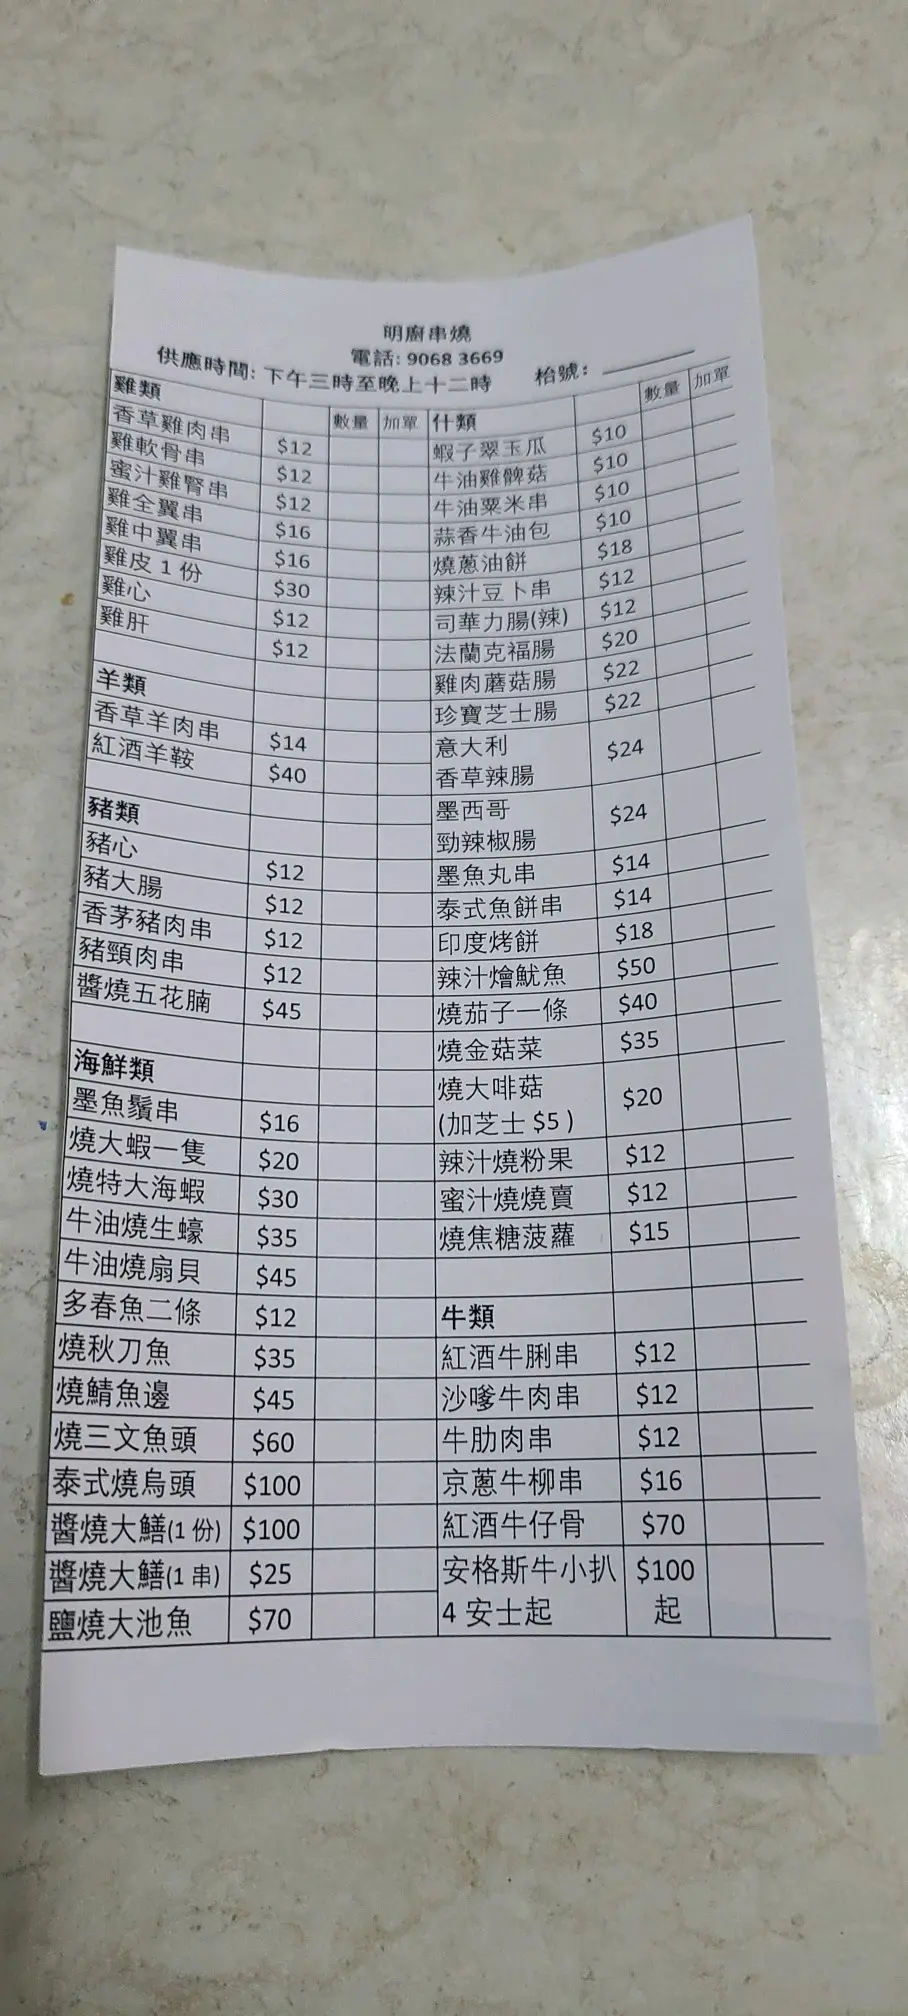 明廚串燒
電話: 9068 3669
供應時間: 下午三時至晚上十二時 枱號:
雞類 數量 加單
香草雞肉串 $12
雞軟骨串 $12
蜜汁雞腎串 $12
雞全翼串 $16
雞中翼串 $16
雞皮 1 份 $30
雞心 $12
雞肝 $12
羊類
香草羊肉串 $14
紅酒羊鞍 $40
豬類
豬心 $12
豬大腸 $12
香茅豬肉串 $12
豬頸肉串 $12
醬燒五花腩 $45
海鮮類
墨魚鬚串 $16
燒大蝦一隻 $20
燒特大海蝦 $30
牛油燒生蠔 $35
牛油燒扇貝 $45
多春魚二條 $12
燒秋刀魚 $35
燒鯖魚邊 $45
燒三文魚頭 $60
泰式燒烏頭 $100
醬燒大鱔(1 份) $100
醬燒大鱔(1 串) $25
鹽燒大池魚 $70
什類 數量 加單
蝦子翠玉瓜 $10
牛油雞髀菇 $10
牛油粟米串 $10
蒜香牛油包 $10
燒蔥油餅 $18
辣汁豆卜串 $12
司華力腸(辣) $12
法蘭克福腸 $20
雞肉蘑菇腸 $22
珍寶芝士腸 $22
意大利
香草辣腸 $24
墨西哥
勁辣椒腸 $24
墨魚丸串 $14
泰式魚餅串 $14
印度烤餅 $18
辣汁燴魷魚 $50
燒茄子一條 $40
燒金菇菜 $35
燒大啡菇
(加芝士 $5 ) $20
辣汁燒粉果 $12
蜜汁燒燒賣 $12
燒焦糖菠蘿 $15
牛類
紅酒牛脷串 $12
沙嗲牛肉串 $12
牛肋肉串 $12
京蔥牛柳串 $16
紅酒牛仔骨 $70
安格斯牛小扒 $100
4 安士起 起